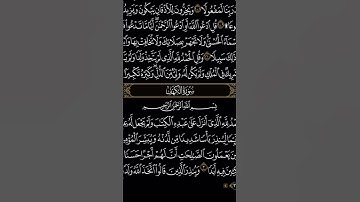 رَبِّنَا لَمَفْعُولًا ۝ وَيَخِرُّونَ لِلْأَذْقَانِ يَبْكُونَ وَيَزِيدُ
قُلِ ادْعُوا اللَّهَ أَوِ ادْعُوا الرَّحْمَٰنَ أَيًّا مَا تَدْعُو
الْحُسْنَىٰ وَلَا تَجْهَرْ بِصَلَاتِكَ وَلَا تُخَافِتْ بِهَا
ذَٰلِكَ سَبِيلًا ۝ وَقُلِ الْحَمْدُ لِلَّهِ الَّذِي لَمْ يَتَّخِذْ وَلَدًا وَلَمْ
فِي الْمُلْكِ وَلَمْ يَكُنْ لَهُ وَلِيٌّ مِنَ الذُّلِّ وَكَبِّرْهُ تَكْبِيرًا
سُورَةُ الْكَهْفِ
بِسْمِ اللَّهِ الرَّحْمَٰنِ الرَّحِيمِ
الْحَمْدُ لِلَّهِ الَّذِي أَنْزَلَ عَلَىٰ عَبْدِهِ الْكِتَابَ وَلَمْ يَجْعَلْ لَهُ
قَيِّمًا لِيُنْذِرَ بَأْسًا شَدِيدًا مِنْ لَدُنْهُ وَيُبَشِّرَ الْمُؤْمِنِ
يَعْمَلُونَ الصَّالِحَاتِ أَنَّ لَهُمْ أَجْرًا حَسَنًا
فِيهِ أَبَدًا ۝ وَيُنْذِرَ الَّذِينَ قَالُوا اتَّخَذَ اللَّهُ وَلَدًا